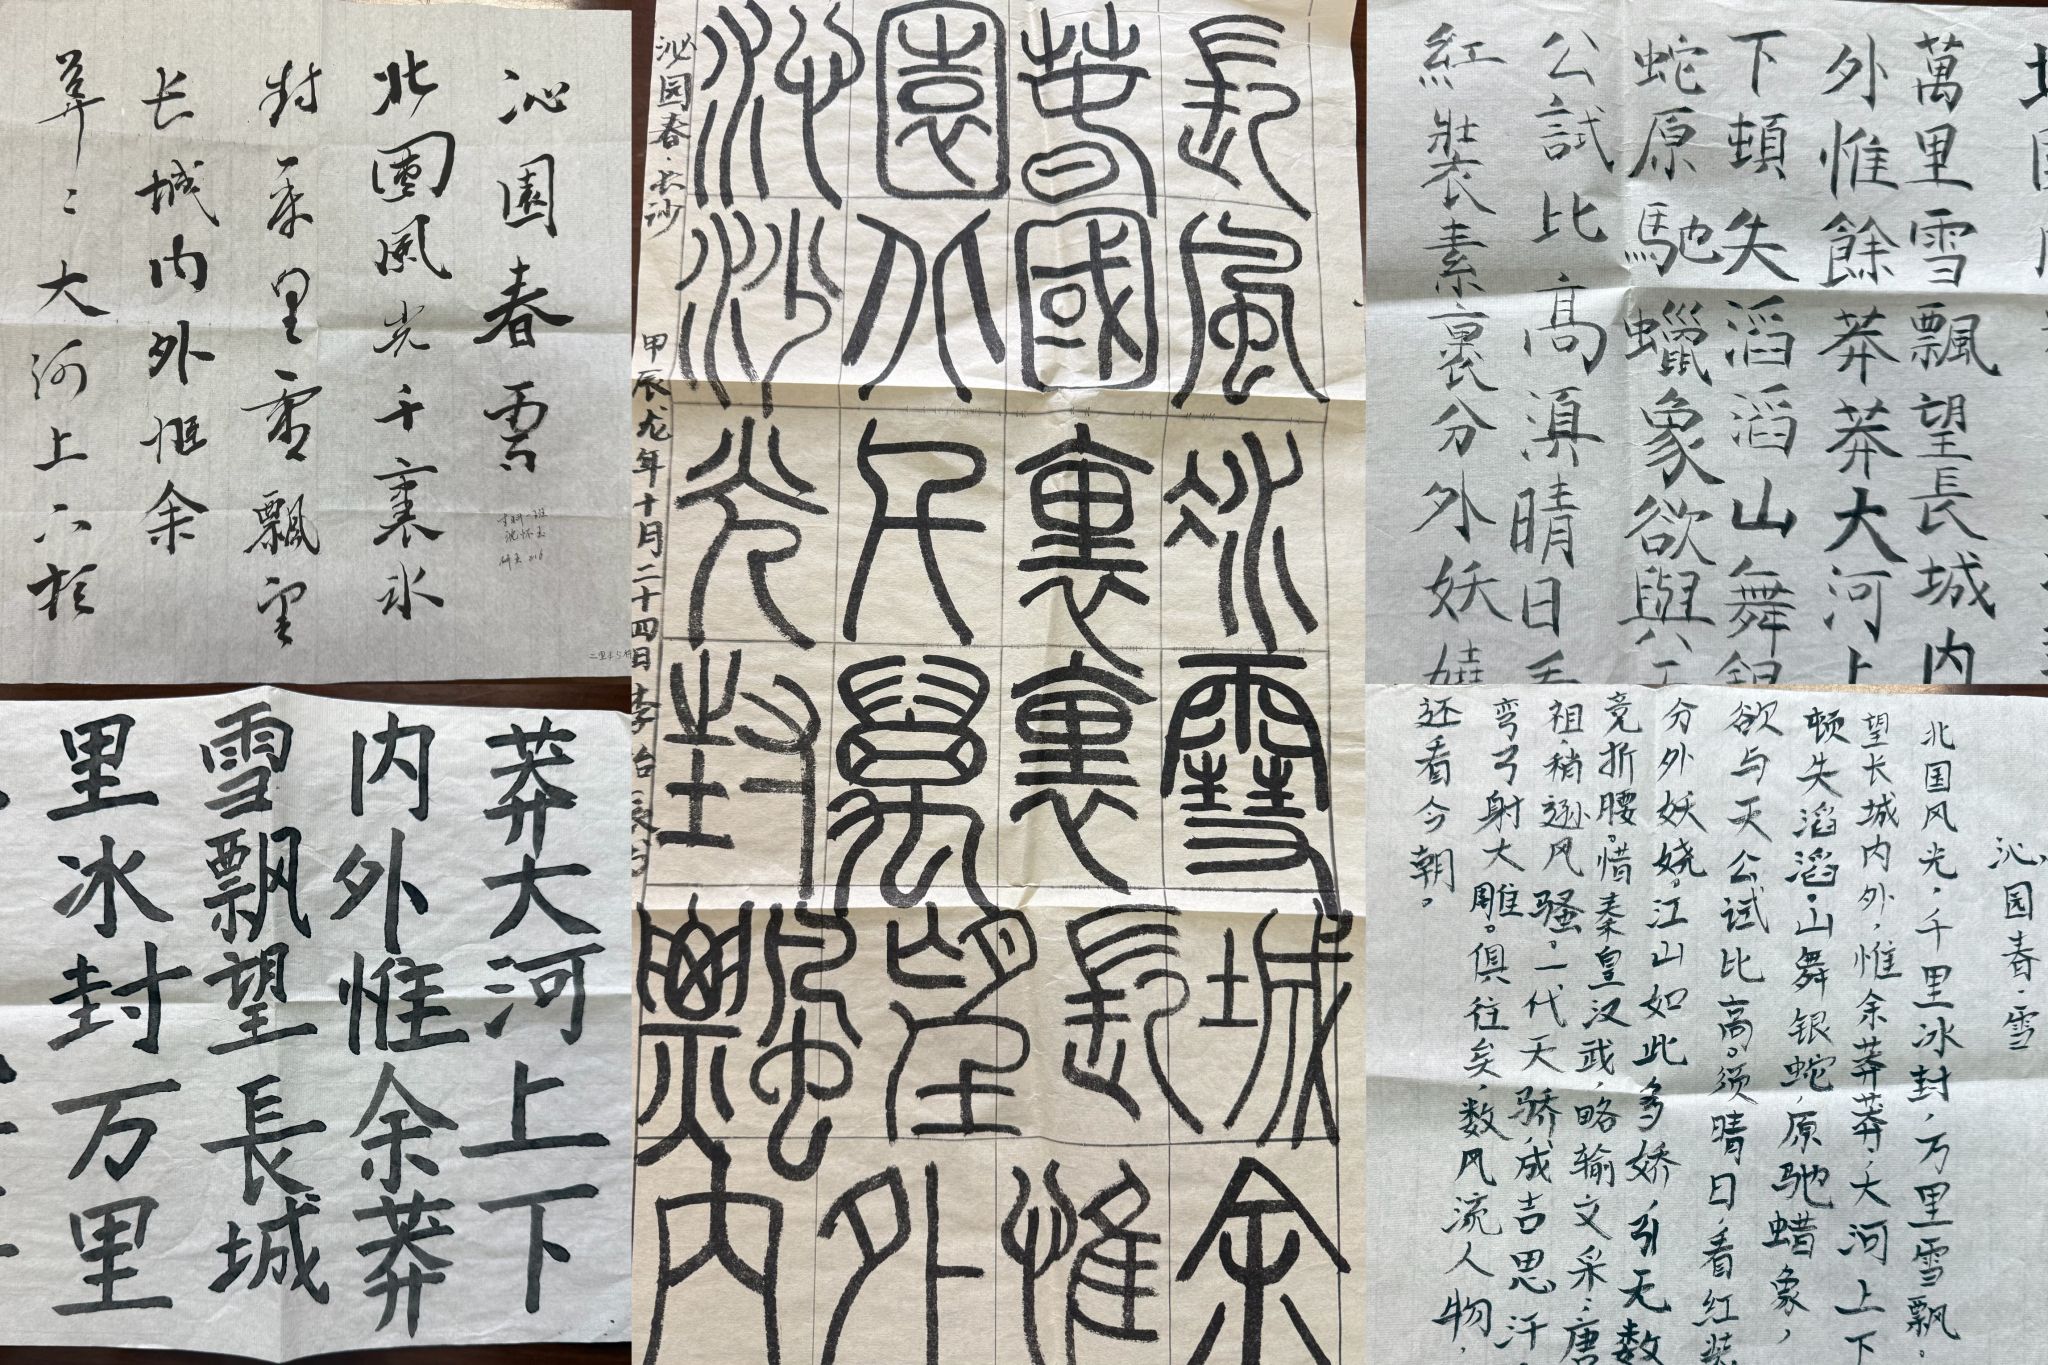 沁園春雪
北國風光千裏冰
封萬里雪飄望
长城内外惟余
莽〻大河上下
里冰封万里
雪飘望長城
内外惟余莽
莽大河上下
沁园春·长沙 甲辰龙年十月二十四日李治辰书
沁園春長
沙北國風
光千裏冰
封萬裏雪
飄望長城
内外惟余
萬里雪飄望長城内
外惟餘莽莽大河上
下頓失滔滔山舞銀
蛇原馳蠟象欲與天
公試比高湏晴日看
紅裝素裹分外妖嬈
沁园春·雪
北国风光，千里冰封，万里雪飘。
望长城内外，惟余莽莽，大河上下
顿失滔滔。山舞银蛇，原驰蜡象，
欲与天公试比高。须晴日，看红装
分外妖娆。江山如此多娇，引无数
竞折腰。惜秦皇汉武，略输文采；唐
祖，稍逊风骚。一代天骄，成吉思汗，
弯弓射大雕。俱往矣，数风流人物，
还看今朝。